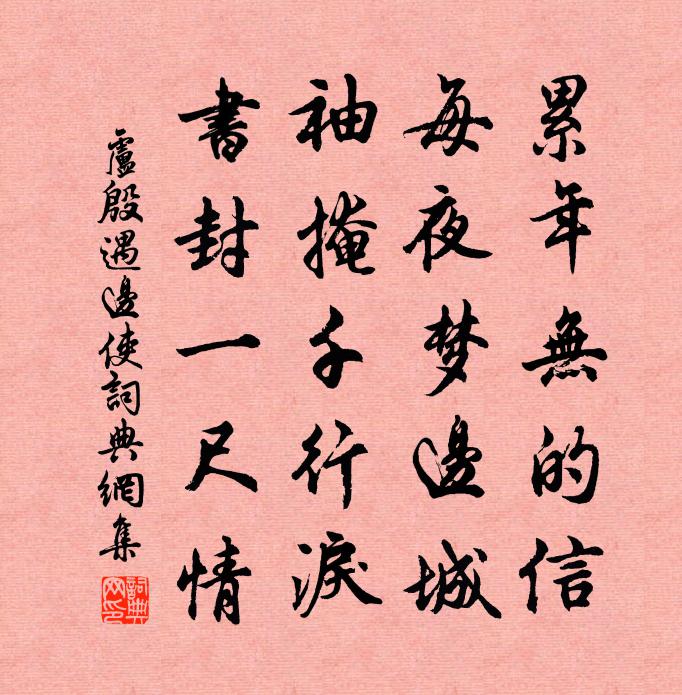 累年無的信
每夜梦邊城
袖掩千行淚
書封一尺情
盧殷遇邊使詞典網集
詞典
网印